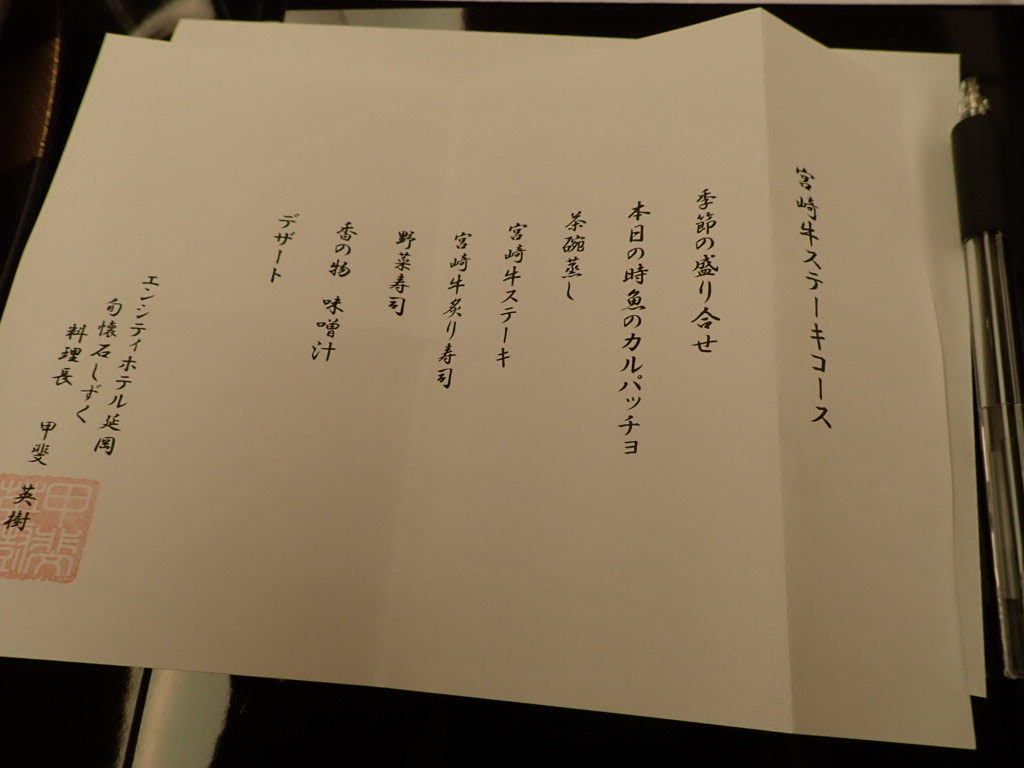 宮崎牛ステーキコース
季節の盛り合せ
本日の時魚のカルパッチョ
茶碗蒸し
宮崎牛ステーキ
宮崎牛炙り寿司
野菜寿司
香の物　味噌汁
デザート
エンシティホテル延岡
旬懐石しずく
料理長　甲斐　英樹